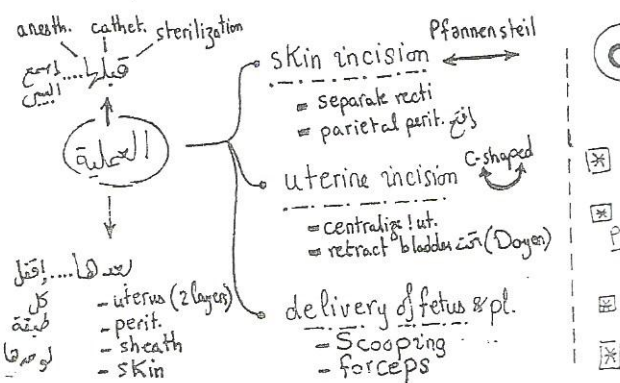 anesth. cathet. sterilization
قبلها....
العملية
بعدها....إقفل
كل
طبقة
لوحدها
- uterus (2 layers)
- perit.
- sheath
- skin
skin incision
Pfannensteil
= separate recti
= parietal perit. إفتح
uterine incision
C-shaped
= centralize ! ut.
= retract bladder تحت (Doyen)
delivery of fetus & pl.
- Scooping
- forceps